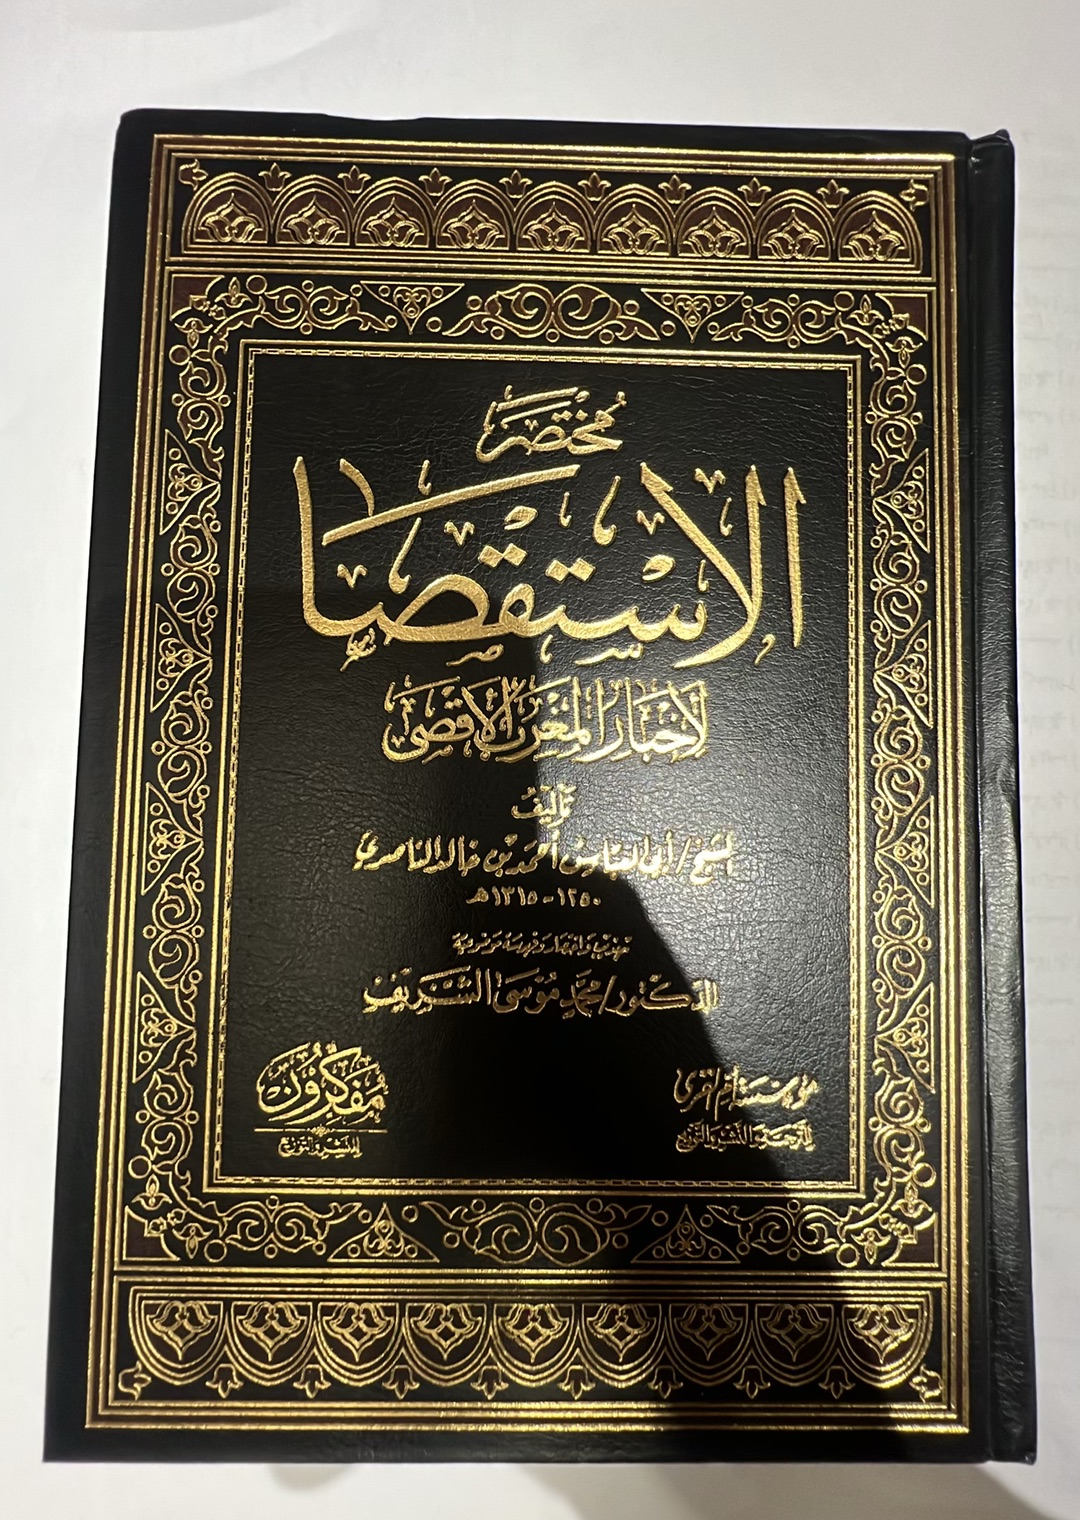 مُخْتَصَر
الاِسْتِقْصَا
لأَخْبَارِ المَغْرِبِ الأَقْصَى
تَأْلِيفُ
الشيخ/أبي العباس أحمد بن خالد الناصري
١٢٥٠-١٣١٥هـ
تهذيب واختصار وفهرسة موضوعية
الدكتور/محمد موسى الشريف
مؤسسة أم القرى
للترجمة والنشر والتوزيع
مُفَكِّرُون
للنشر والتوزيع